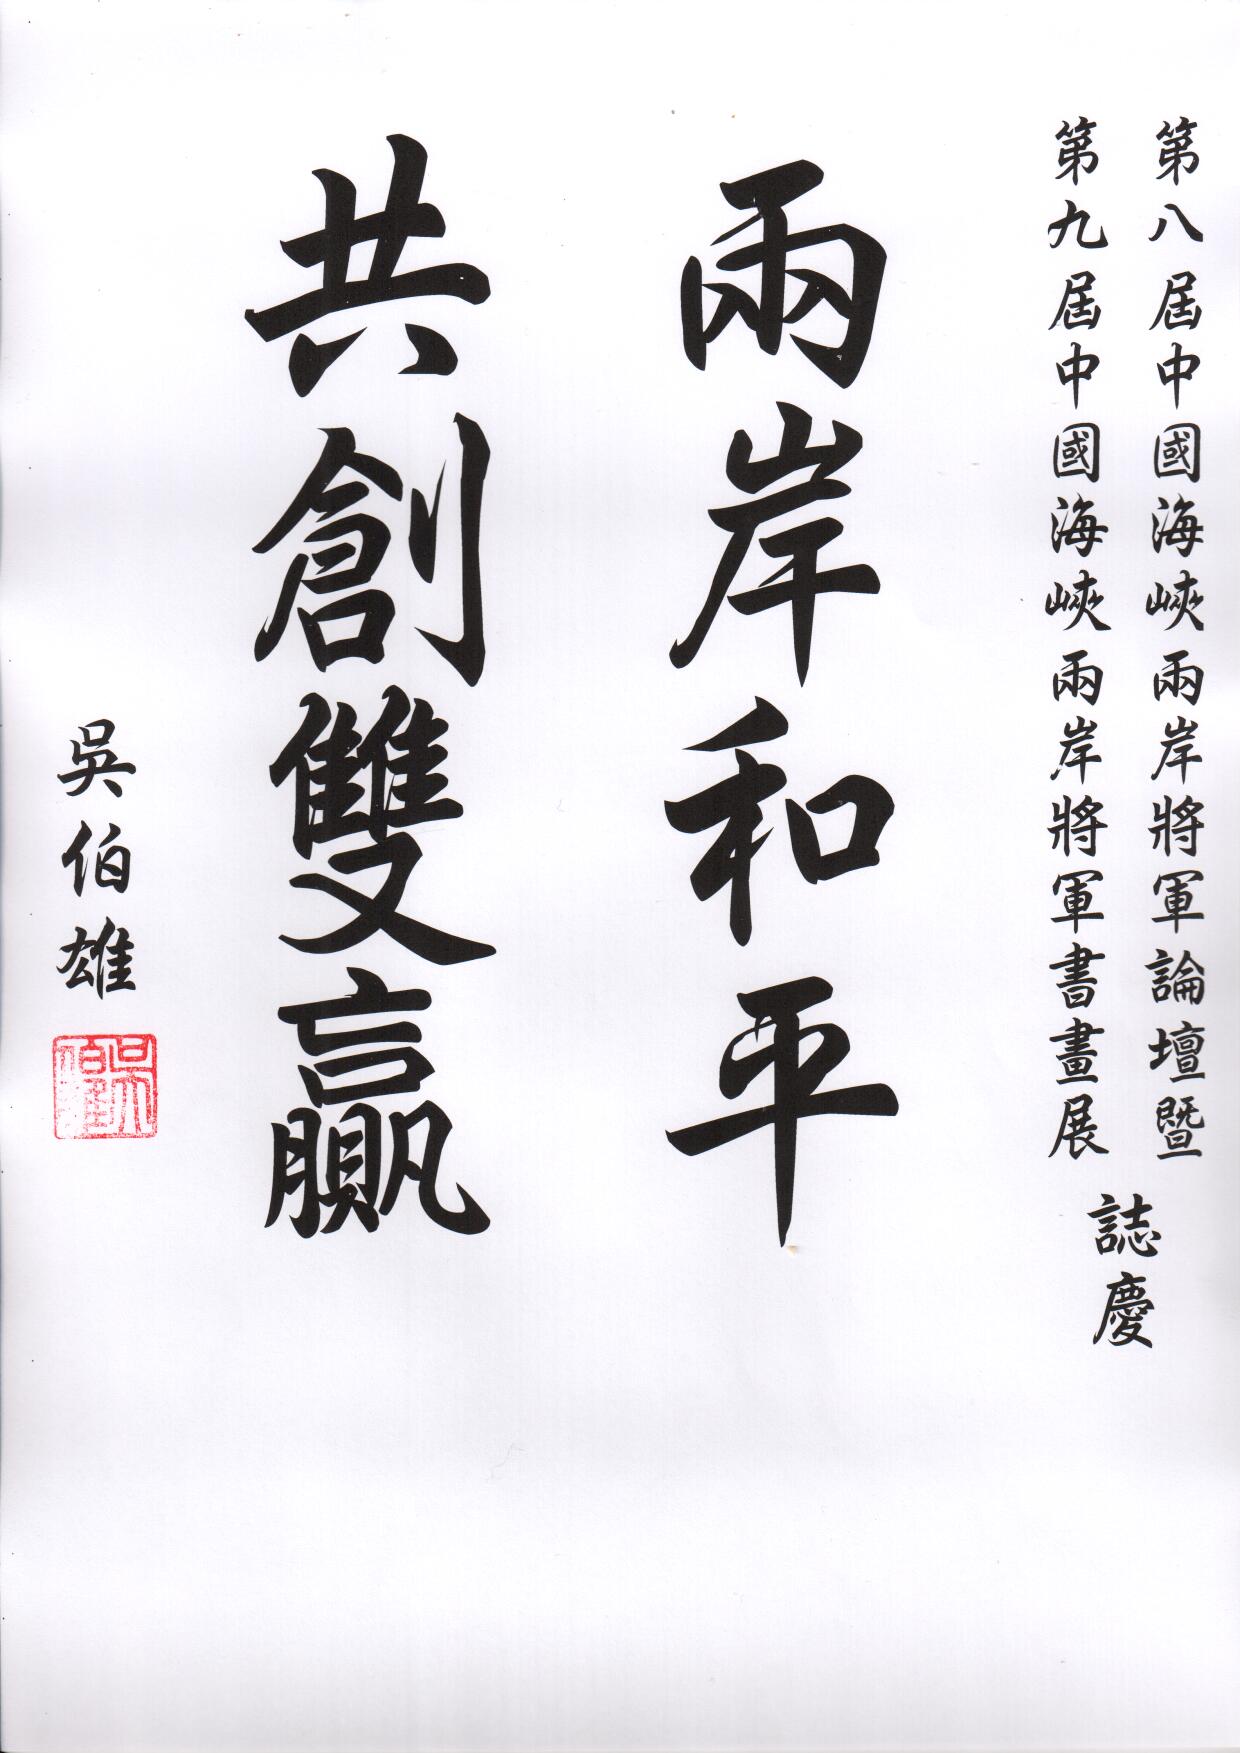 第八屆中國海峽兩岸將軍論壇暨
第九屆中國海峽兩岸將軍書畫展
誌慶
兩岸和平
共創雙贏
吳伯雄
吳伯雄